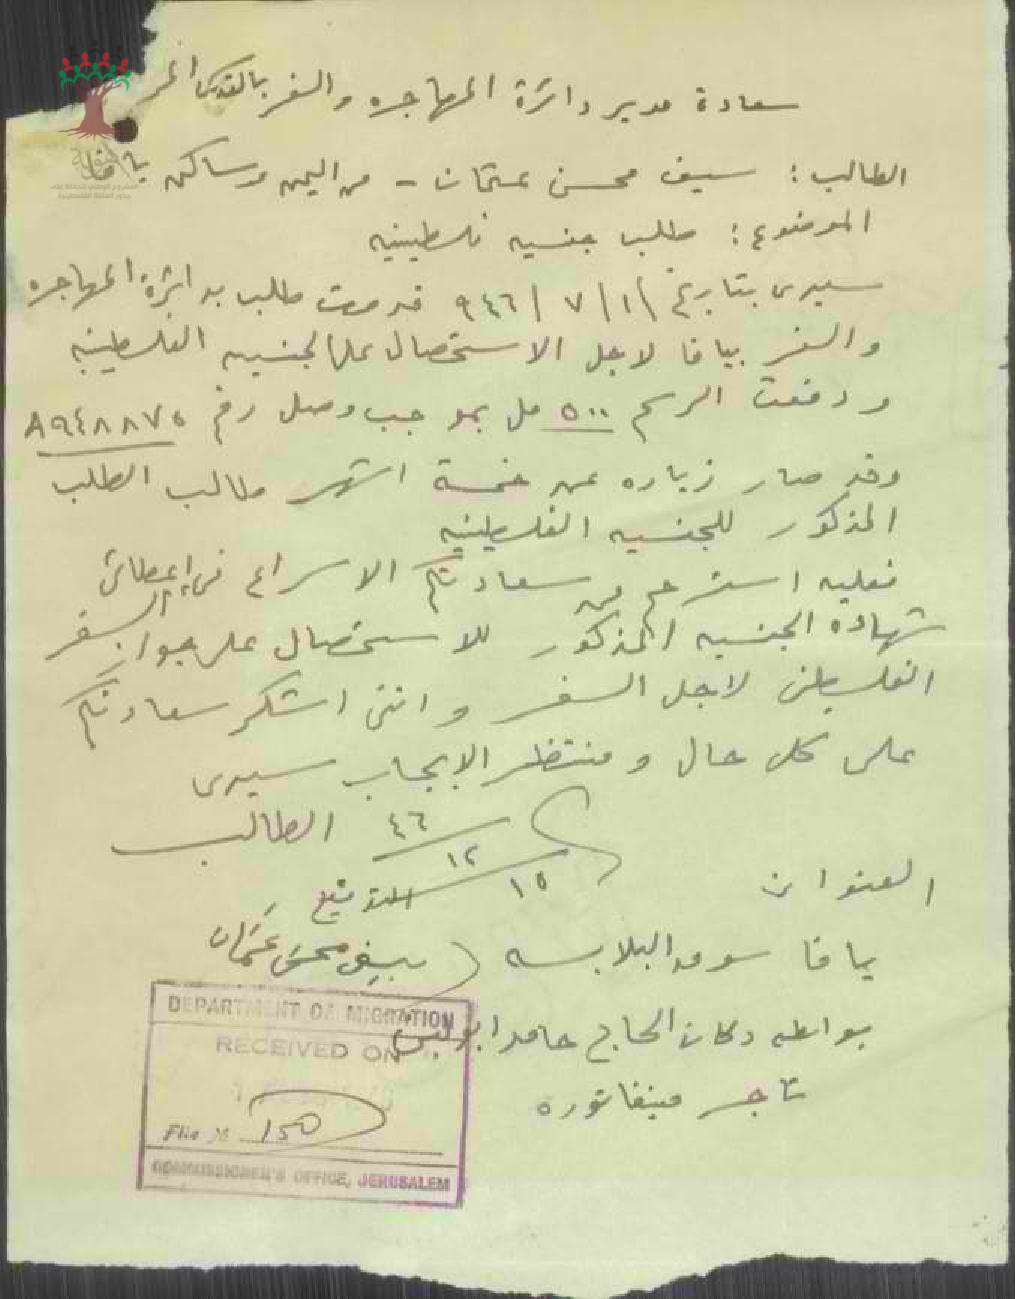 سعادة مدير دائرة المهاجره والسفر بالقدس
الطالب : سيف محسن عثمان - من اليمن وساكن يافا
الموضوع : طلب جنسيه فلسطينيه
سيدي بتاريخ ١/ ٧/ ٩٤٦ قدمت طلب بدائرة المهاجره
والسفر بيافا لاجل الاستحصال على الجنسيه الفلسطينيه
ودفعت الرسم ٥٠٠ مل بموجب وصل رقم A٩٤٨٨٧٥
وقد صار زياده عن خمسة اشهر طالب الطلب
المذكور للجنسيه الفلسطينيه
فعليه استرحم من سعادتكم الاسراع في اعطائي
شهادة الجنسيه المذكور للاستحصال على جواز السفر
الفلسطيني لاجل السفر وانني اشكر سعادتكم
على كل حال ومنتظر الايجاب سيدي
الطالب
٤٦
١٢
١٥
العنوان
التوقيع
يافا سوق البلابسه
سيف محسن عثمان
بواسطه دكان الحاج حامد ابو لبن
تاجر مينفاتوره
DEPARTMENT OF MIGRATION
RECEIVED ON
File № 150
COMMISSIONER'S OFFICE, JERUSALEM